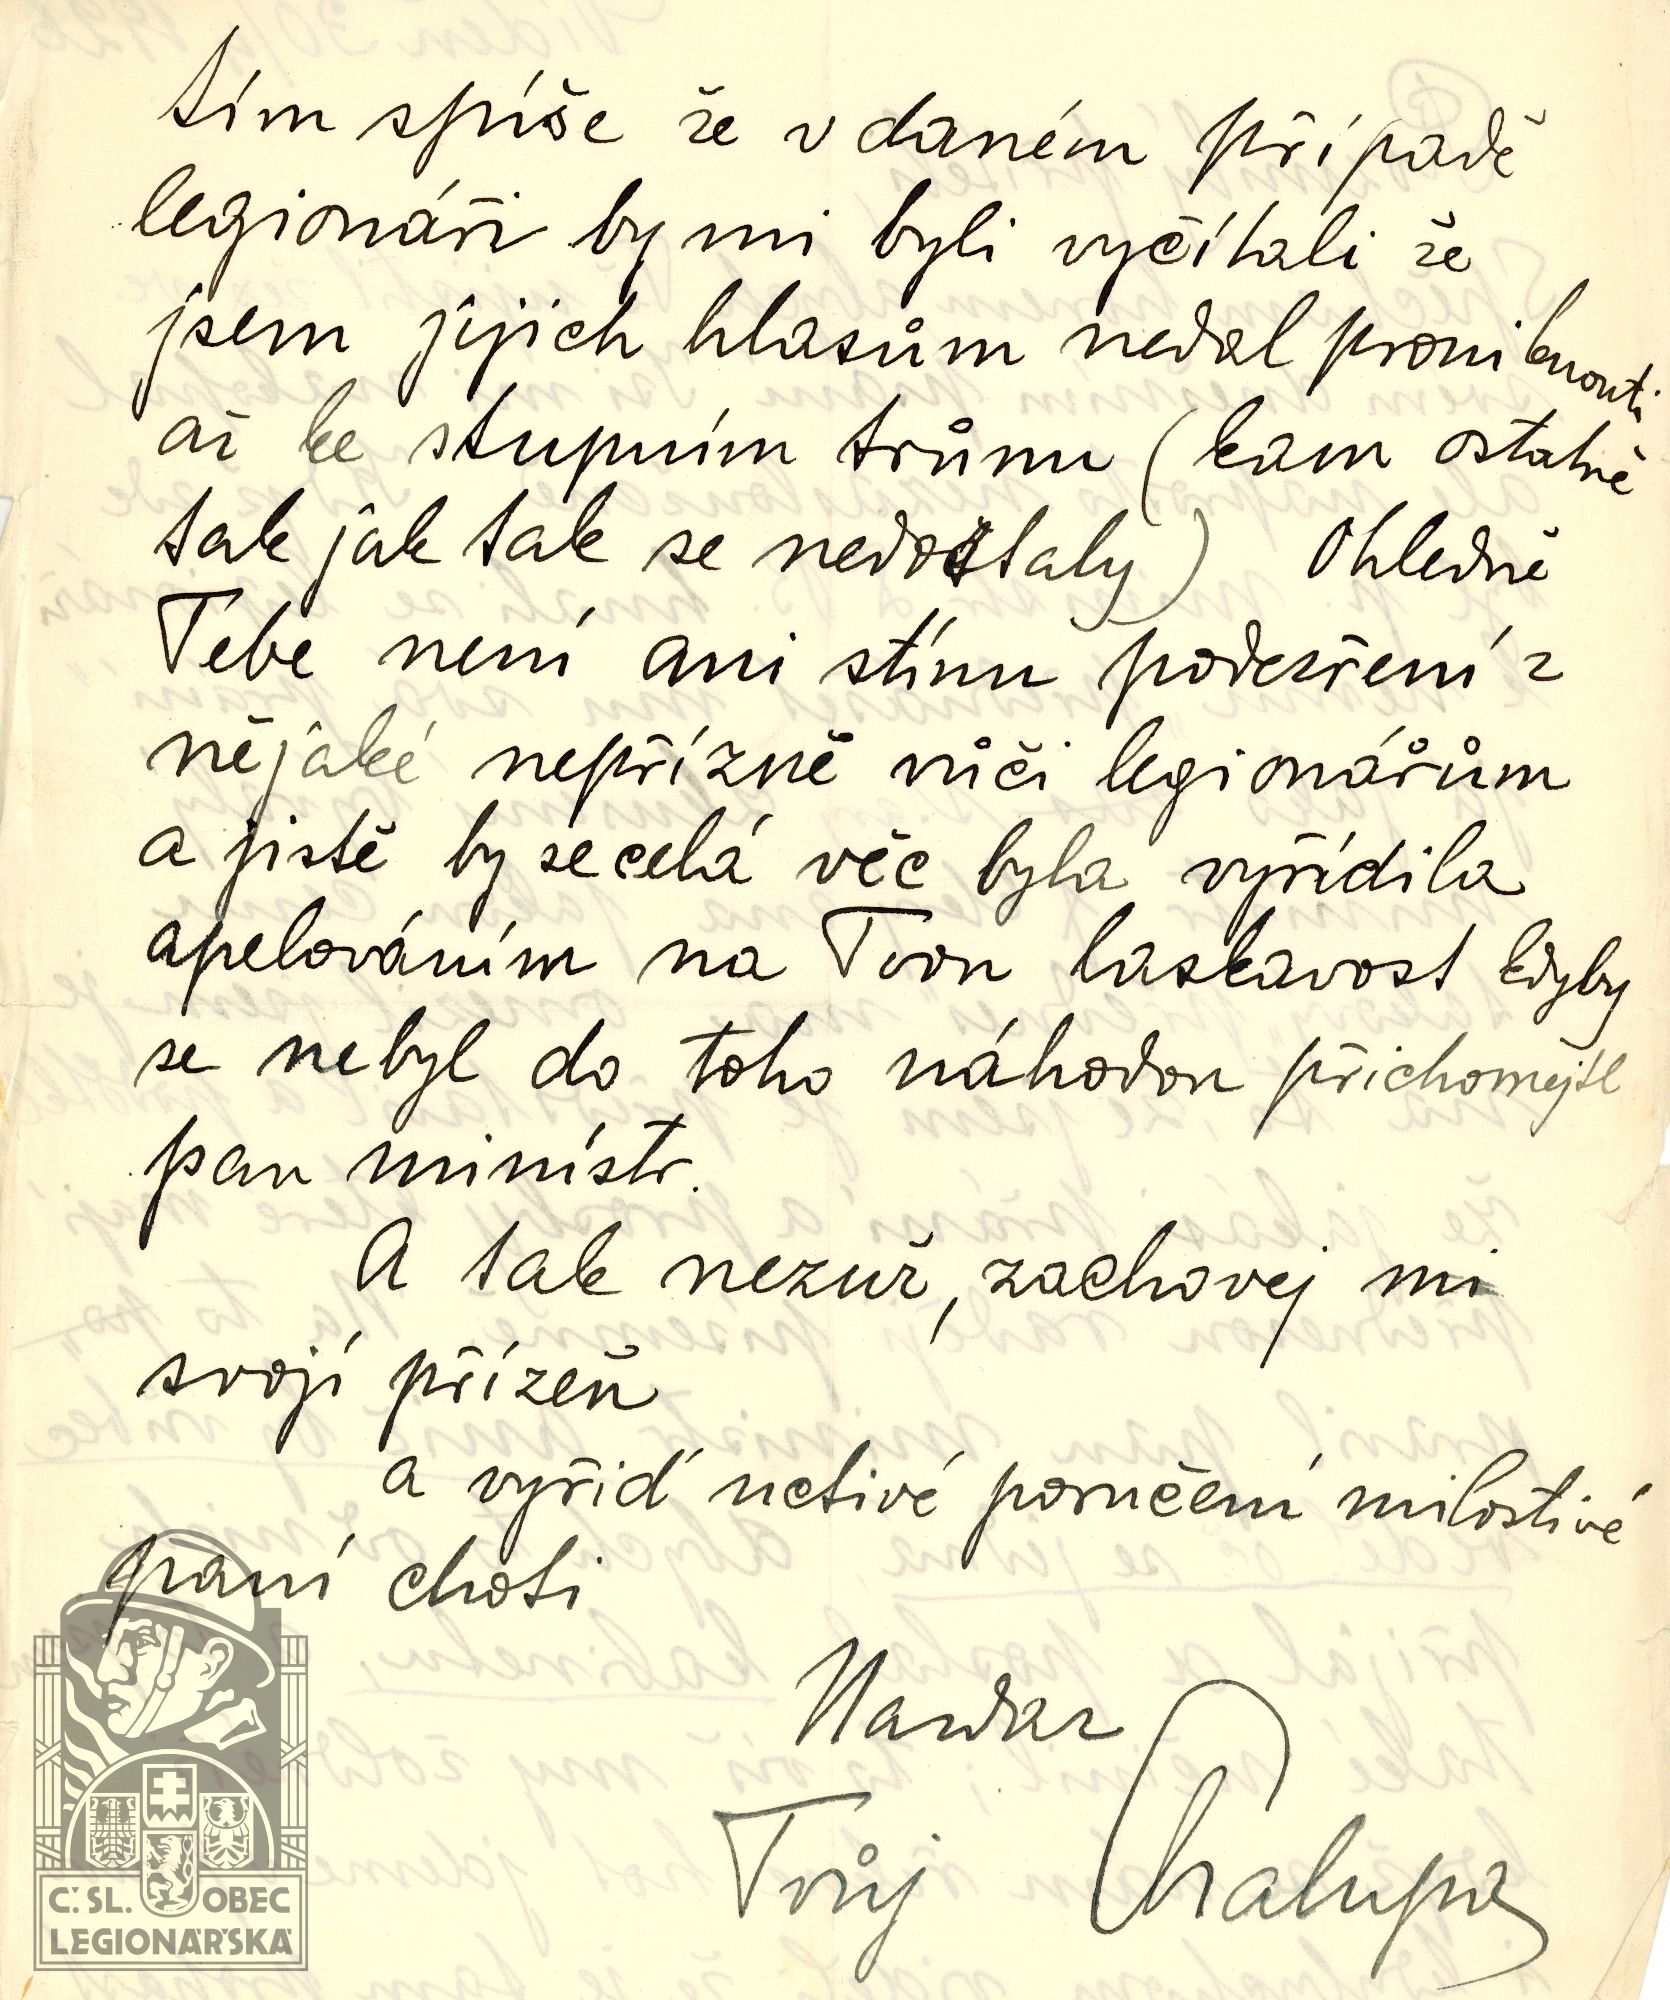 tím spíše že v daném případě
legionáři by mi byli vyčítali že
jsem jejich hlasům nedal proniknouti
až ke stupním trůnu (kam ostatně
tak jak tak se nedostaly) Ohledně
Tebe není ani stínu podezření z
nějaké nepřízně vůči legionářům
a jistě by se celá věc byla vyřídila
apelováním na Tvou laskavost kdyby
se nebyl do toho náhodou přichomejtl
pan ministr.
A tak nezuř, zachovej mi
svojí přízeň
a vyřiď uctivé poručení milostivé
paní choti
Nazdar
Tvůj Chalupa
Č.SL. OBEC
LEGIONÁŘSKÁ